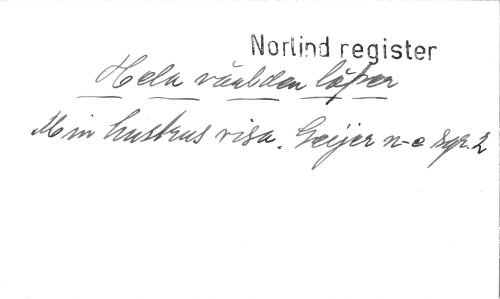 Norlind register
Hela världen löper
Min hustrus visa. Geijer n-e sgr. 2